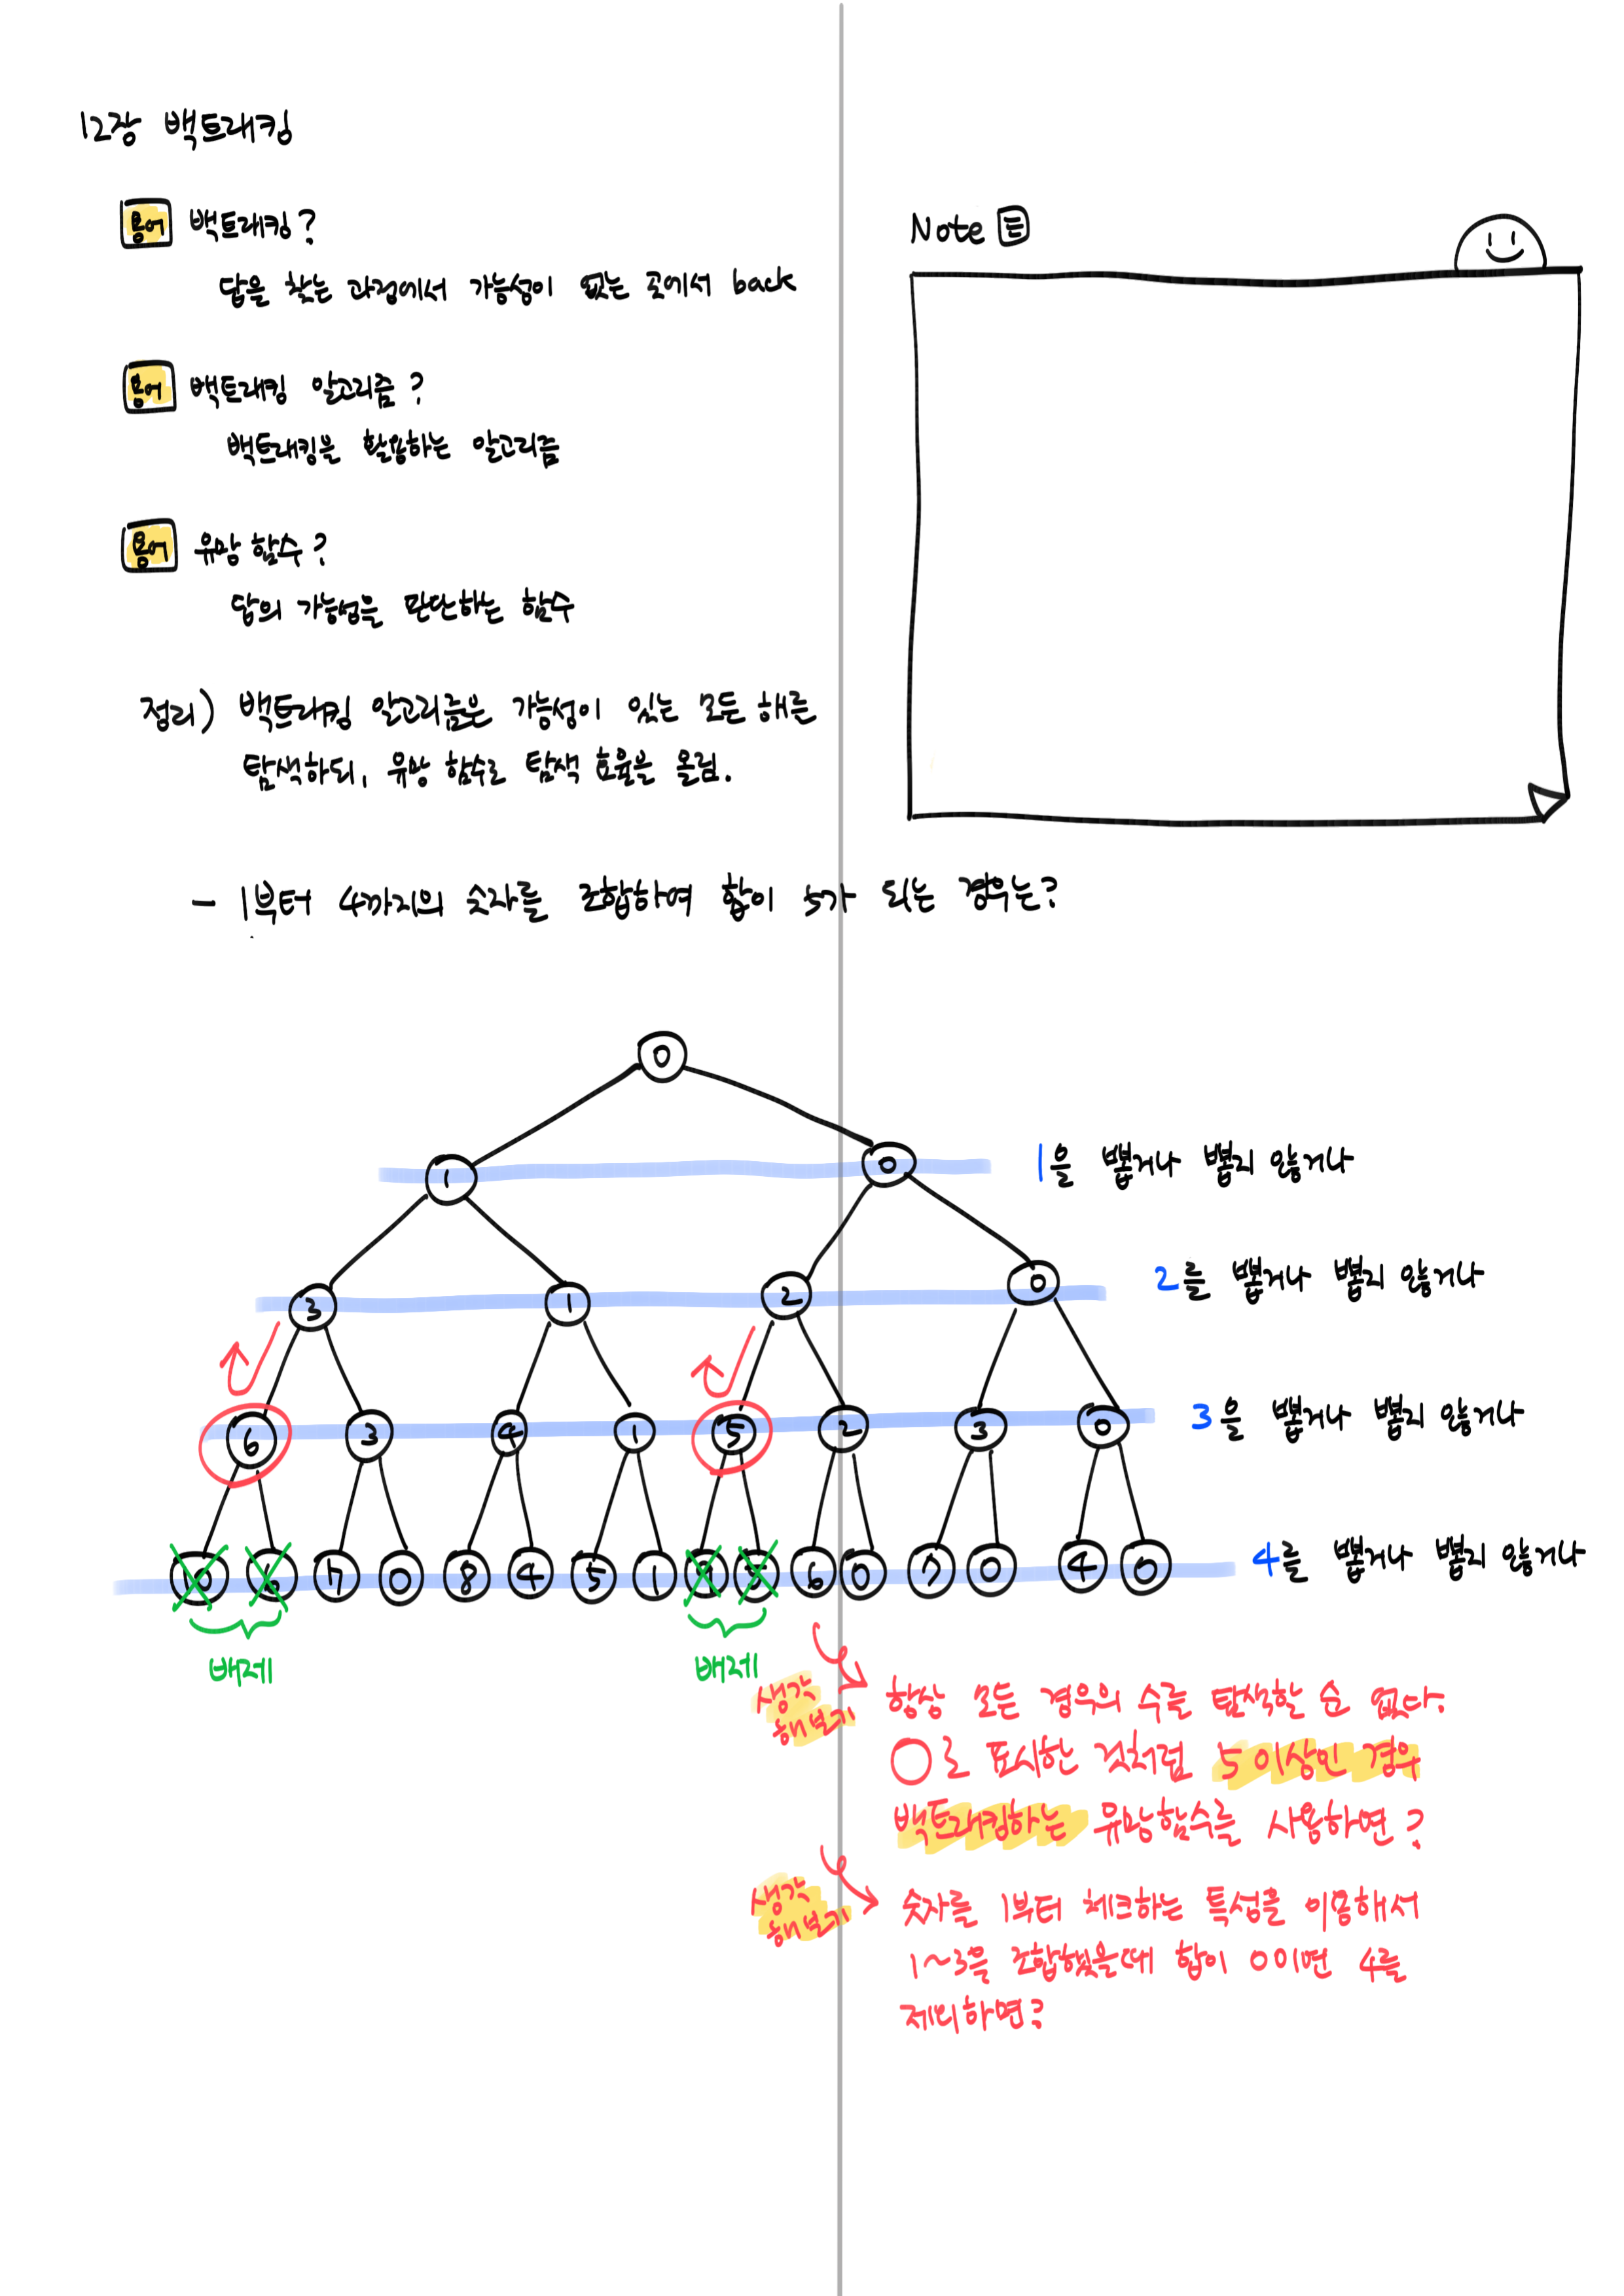 12장 백트래킹
용어 백트래킹?
답을 찾는 과정에서 가능성이 없는 곳에서 back
용어 백트래킹 알고리즘?
백트래킹을 활용하는 알고리즘
용어 유망 함수?
답의 가능성을 판단하는 함수
정리) 백트래킹 알고리즘은 가능성이 있는 모든 해를
탐색하되, 유망 함수로 탐색 효율을 올림.
Note
- 1부터 4까지의 숫자를 조합하여 합이 5가 되는 경우는?
0
1 0 1을 뽑거나 뽑지 않거나
3 1 2 0 2를 뽑거나 뽑지 않거나
6 3 4 1 5 2 3 0 3을 뽑거나 뽑지 않거나
10 6 7 0 8 4 5 1 9 5 6 0 7 0 4 0 4를 뽑거나 뽑지 않거나
배제 배제
생각
해보기
항상 모든 경우의 수를 탐색할 순 없다.
○로 표시한 것처럼 5 이상인 경우
백트래킹하는 유망함수를 사용하면?
생각
해보기
숫자를 1부터 체크하는 특성을 이용해서
1~3을 조합했을때 합이 0이면 4를
제외하면?